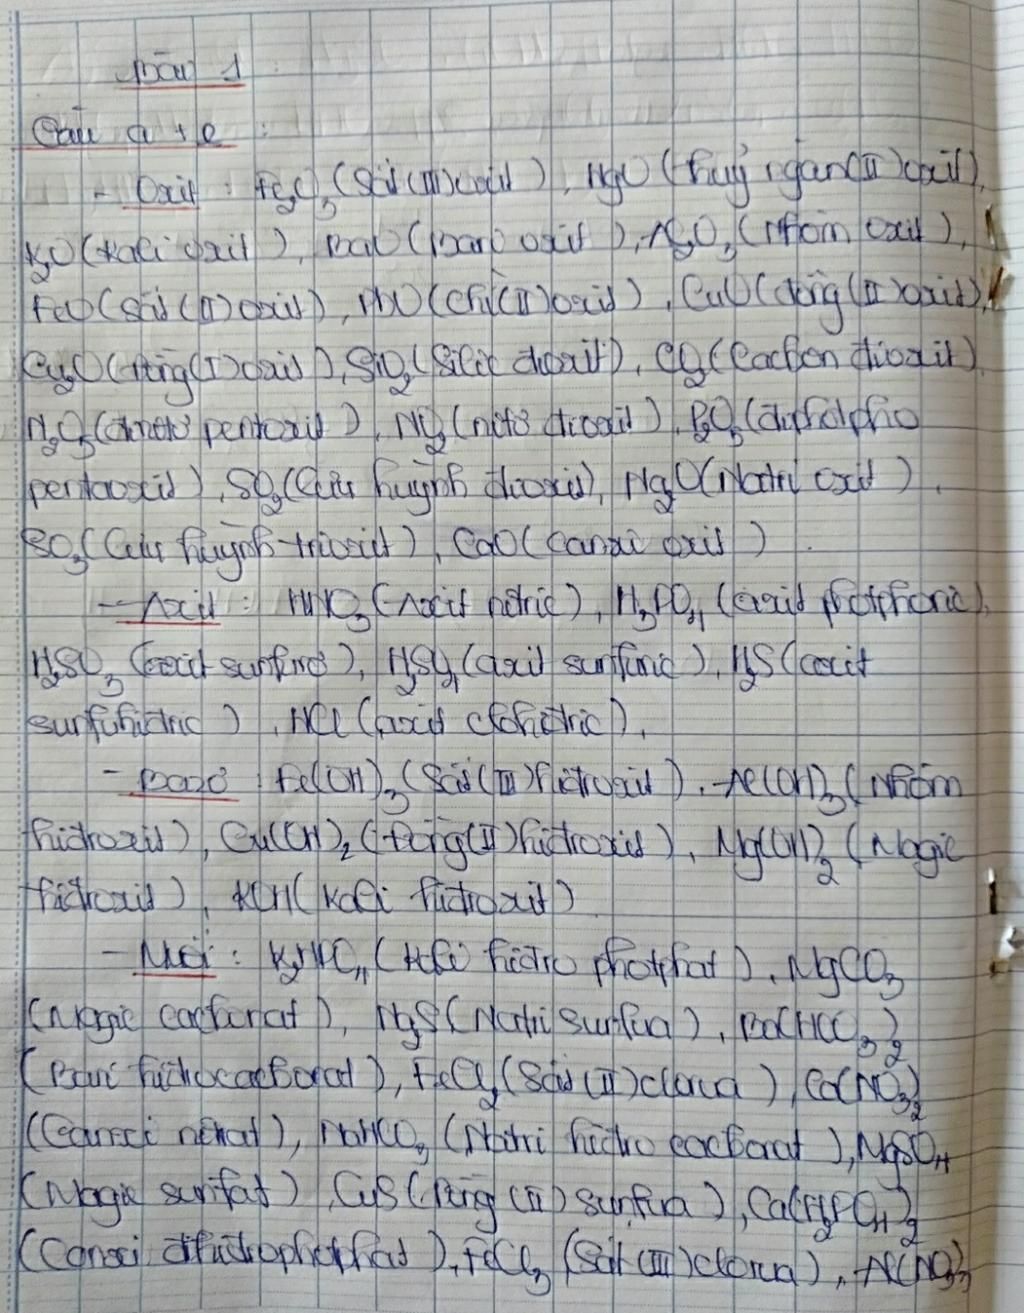 Bài 1
Câu a + e :
- Oxit : Fe₂O₃ (Sắt (III) oxit), HgO (thuỷ ngân (II) oxit),
K₂O (kali oxit), BaO (bari oxit), Al₂O₃ (Nhôm oxit),
FeO (Sắt (II) oxit), PbO (chì (II) oxit), CuO (đồng (II) oxit),
Cu₂O (đồng (I) oxit), SiO₂ (Silic đioxit), CO₂ (Cacbon đioxit)
N₂O₅ (đinitơ pentoxit), NO₂ (nitơ đioxit), P₂O₅ (điphotpho
pentaoxit), SO₂ (Lưu huỳnh đioxit), Na₂O (Natri oxit),
SO₃ (Lưu huỳnh trioxit), CaO (canxi oxit).
- Axit : HNO₃ (Axit nitric), H₃PO₄ (axit photphoric),
H₂SO₃ (axit sunfurơ), H₂SO₄ (axit sunfuric), H₂S (axit
sunfuhidric), HCl (axit clohidric).
- Bazơ : Fe(OH)₃ (Sắt (III) hidroxit), Al(OH)₃ (Nhôm
hidroxit), Cu(OH)₂ (đồng (II) hidroxit), Mg(OH)₂ (Magie
hidroxit), KOH (Kali hidroxit)
- Muối : K₂HPO₄ (Kali hidro photphat), MgCO₃
(Magie cacbonat), Na₂S (Natri sunfua), Ba(HCO₃)₂
(Bari hidrocacbonat), FeCl₂ (Sắt (II) clorua), Ca(NO₃)₂
(Canxi nitrat), NaHCO₃ (Natri hidro cacbonat), MgSO₄
(Magie sunfat), CuS (Đồng (II) sunfua), Ca(H₂PO₄)₂
(Canxi đihidrophotphat), FeCl₃ (Sắt (III) clorua), Al(NO₃)₃